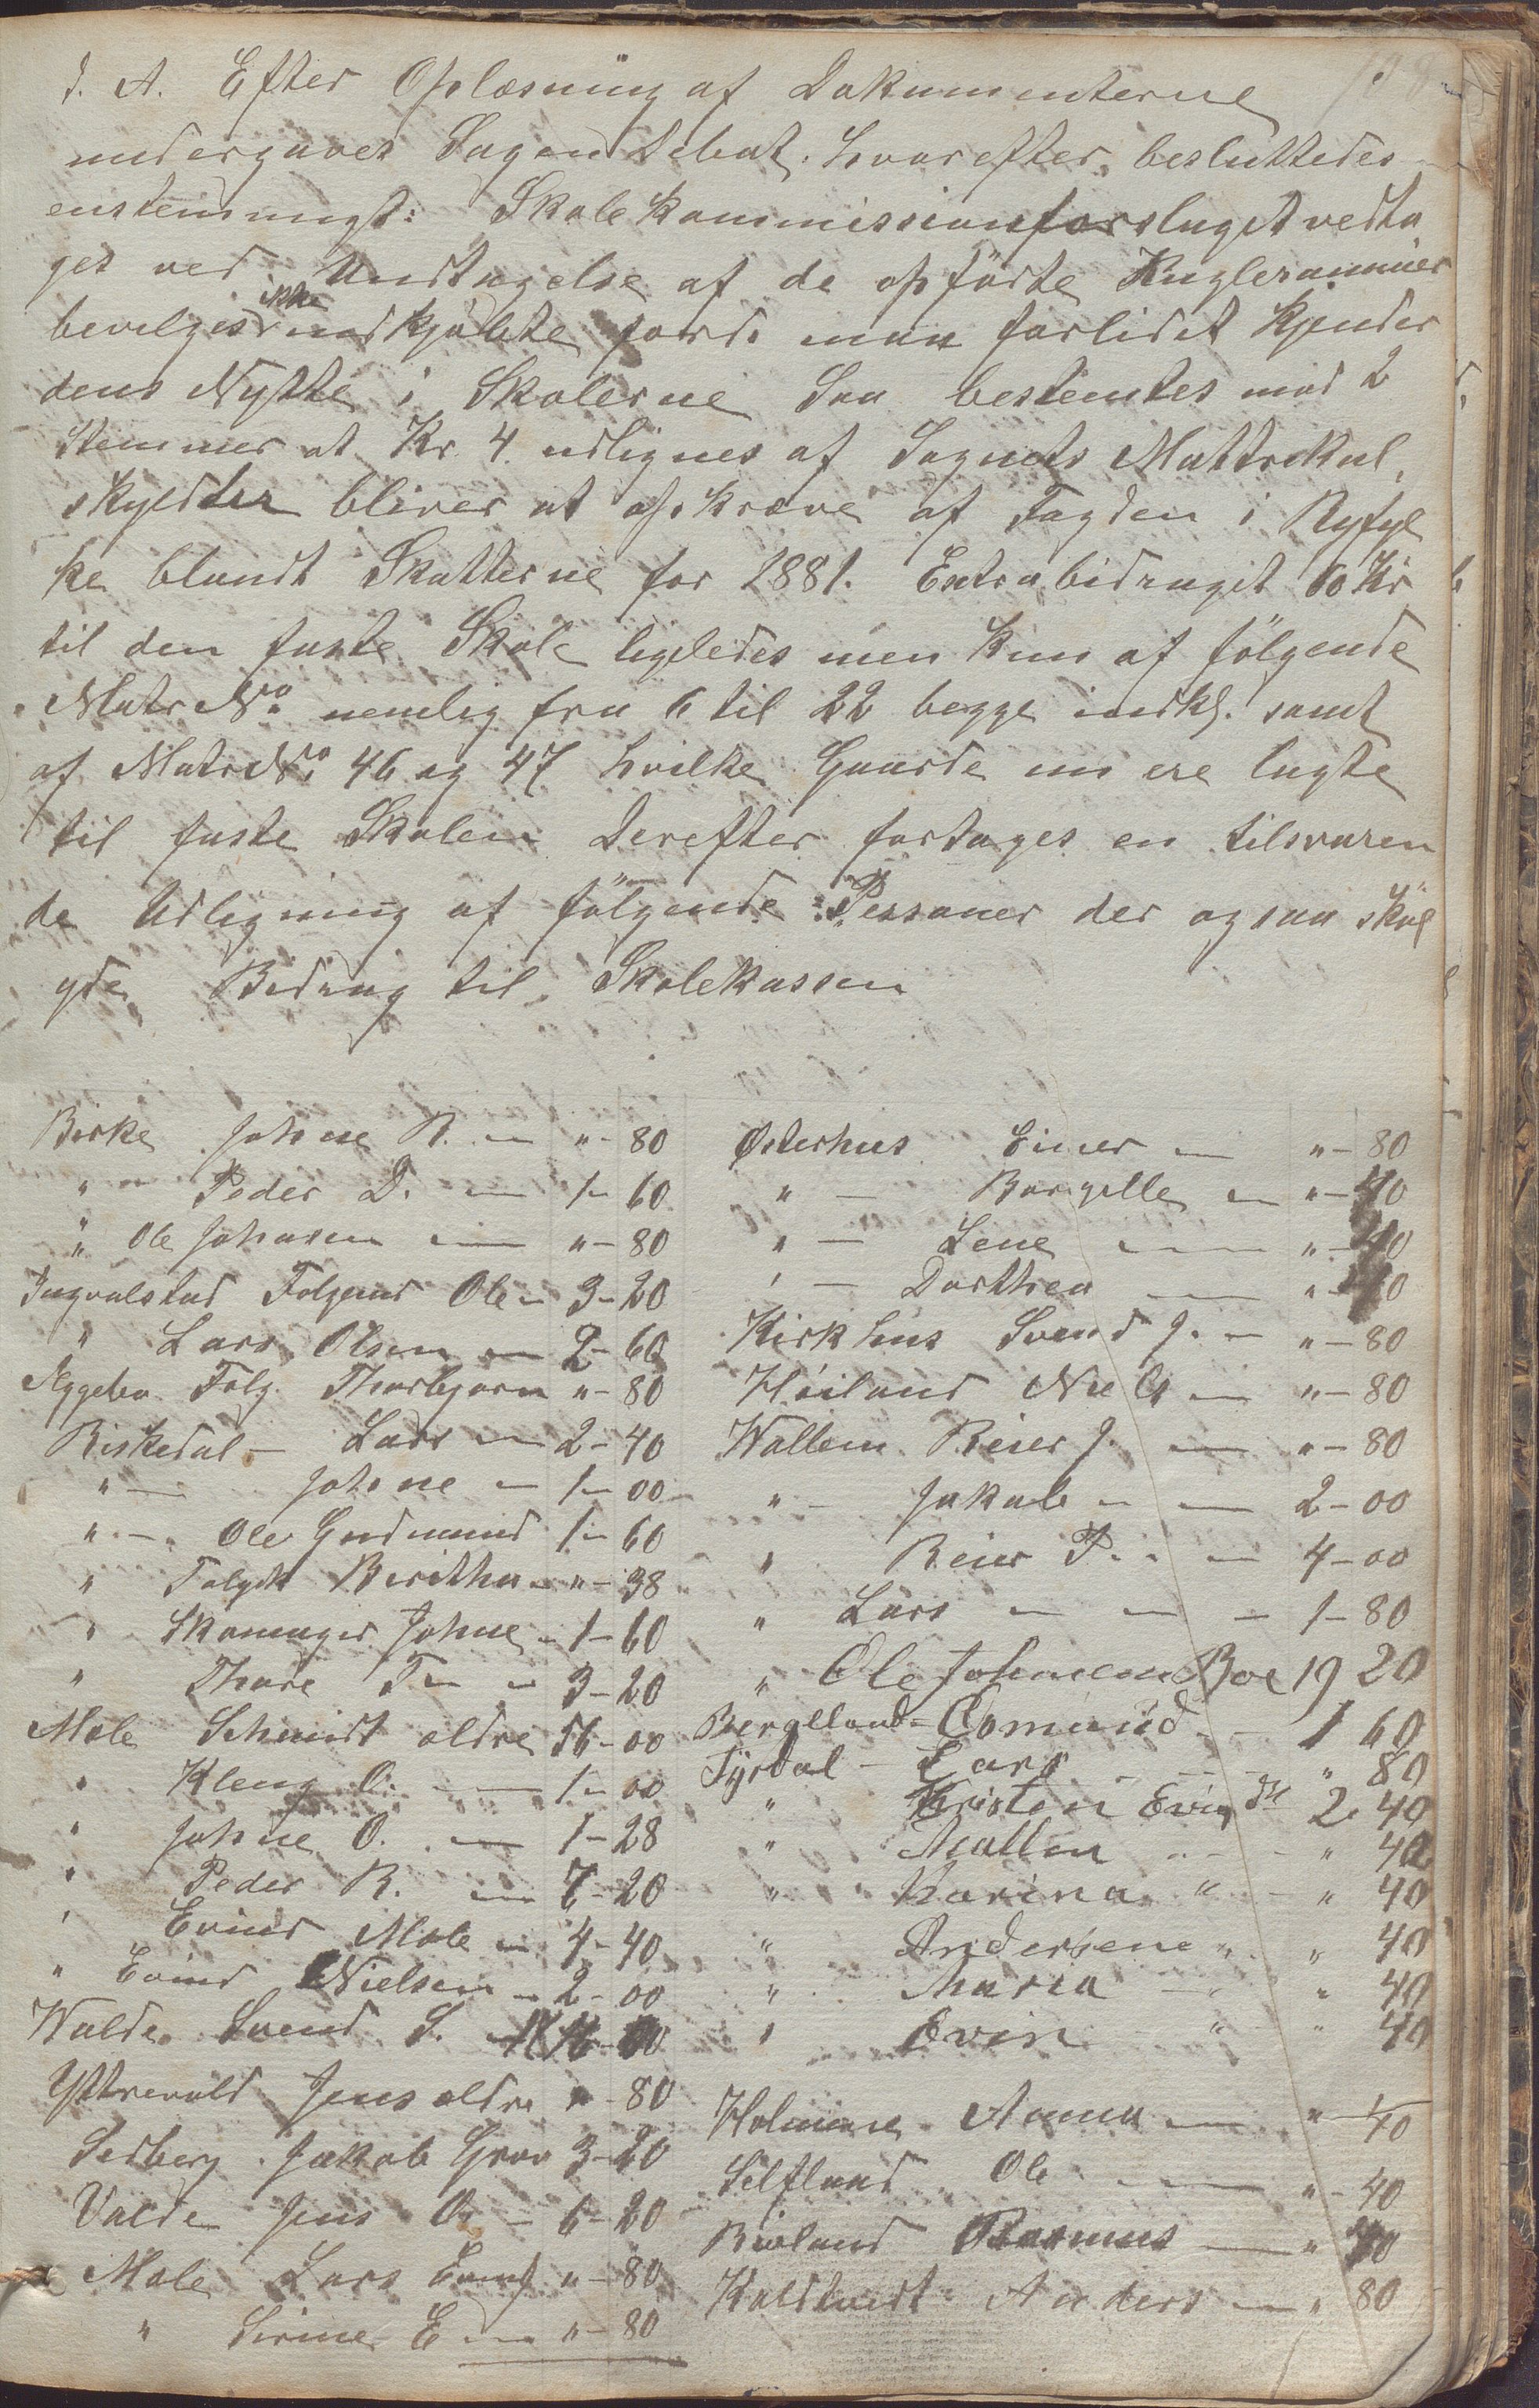 J. A. Efter Oplæsning af Dokumenterne
undergaves Sagen Debat. hvorefter besluttedes
enstemmigt: Skolekommissionsforslaget vedta
get ved Undtagelse af de opførte Kuglerammer
bevilges ikke indkjøbte fordi man forlidet kjender
dens Nytte i Skolerne Saa bestemtes mod 2
Stemmer at Kr. 4 udlignes af Sognets Mattrikul,
skyld der bliver at opkræve af Fogden i Ryfyl
ke blandt Skatterne for 1881. Extrabidraget 60 Kr
til den faste Skole ligeledes men kun af følgende
Matr No nemlig fra 6 til 22 begge indkl. samt
af Matr No 46 og 47 hvilke Gaarde nu ere lagte
til faste Skolen Derefter fortages en tilsvaren
de Udligning af følgende Personer der ogsaa skal
yde Bidrag til Skolekassen
Birke Johne R. — " - 80
" Peder D. — 1 - 60
" Ole Johnsen — " - 80
Ingvalstad Folgemd Ole - 3 - 20
" Lars Olsen — 2 - 60
Æggebø Folg. Thorbjørn " - 80
Riskedal - Lars — 2 - 40
" — Johne — 1 - 00
" — Ole Gudmund 1 - 60
" Folgek Beritha - " - 38
" Skomager Johne - 1 - 60
" Thore T — 3 - 20
Mæle Schmidt ældre 56 - 00
" Kleng O. — 1 - 00
" Johne O. — 1 - 28
" Peder R. — 7 - 20
" Evind Mæle — 4 - 40
" Evind Nielsen - 2 - 00
Walde Svend S.
Yttrevold Jens ældre " - 80
Sedberg Jakob Grov 3 - 20
Valde Jens O. - 6 - 20
Mæle Lars " - 80
" Sirine E — " - 80
Østerhus Einer — " - 80
" — Borgille — " - 40
" — Lene — " - 40
" — Dorthea — " - 40
Kirkhus Svend J. — " - 80
Høiland Niels — " - 80
Wallem Reier J. — " - 80
" - Jakob — 2 - 00
" Reier P. — 4 - 00
" Lars — 1 - 80
" Ole Johnsen Boe 19 20
Bergeland - Osmund - 1 60
Tysdal - Lars - " 80
" Kristen Evindsn 2. 40
" Mallen " 40
" Karina " " 40
" Andersene " " 40
" Maria — " 40
" Evin " " 40
Holmene Anna — " 40
Selfland Ole — " - 40
Bioland Rasmus — " 40
Koldtvedt Anders — " 80